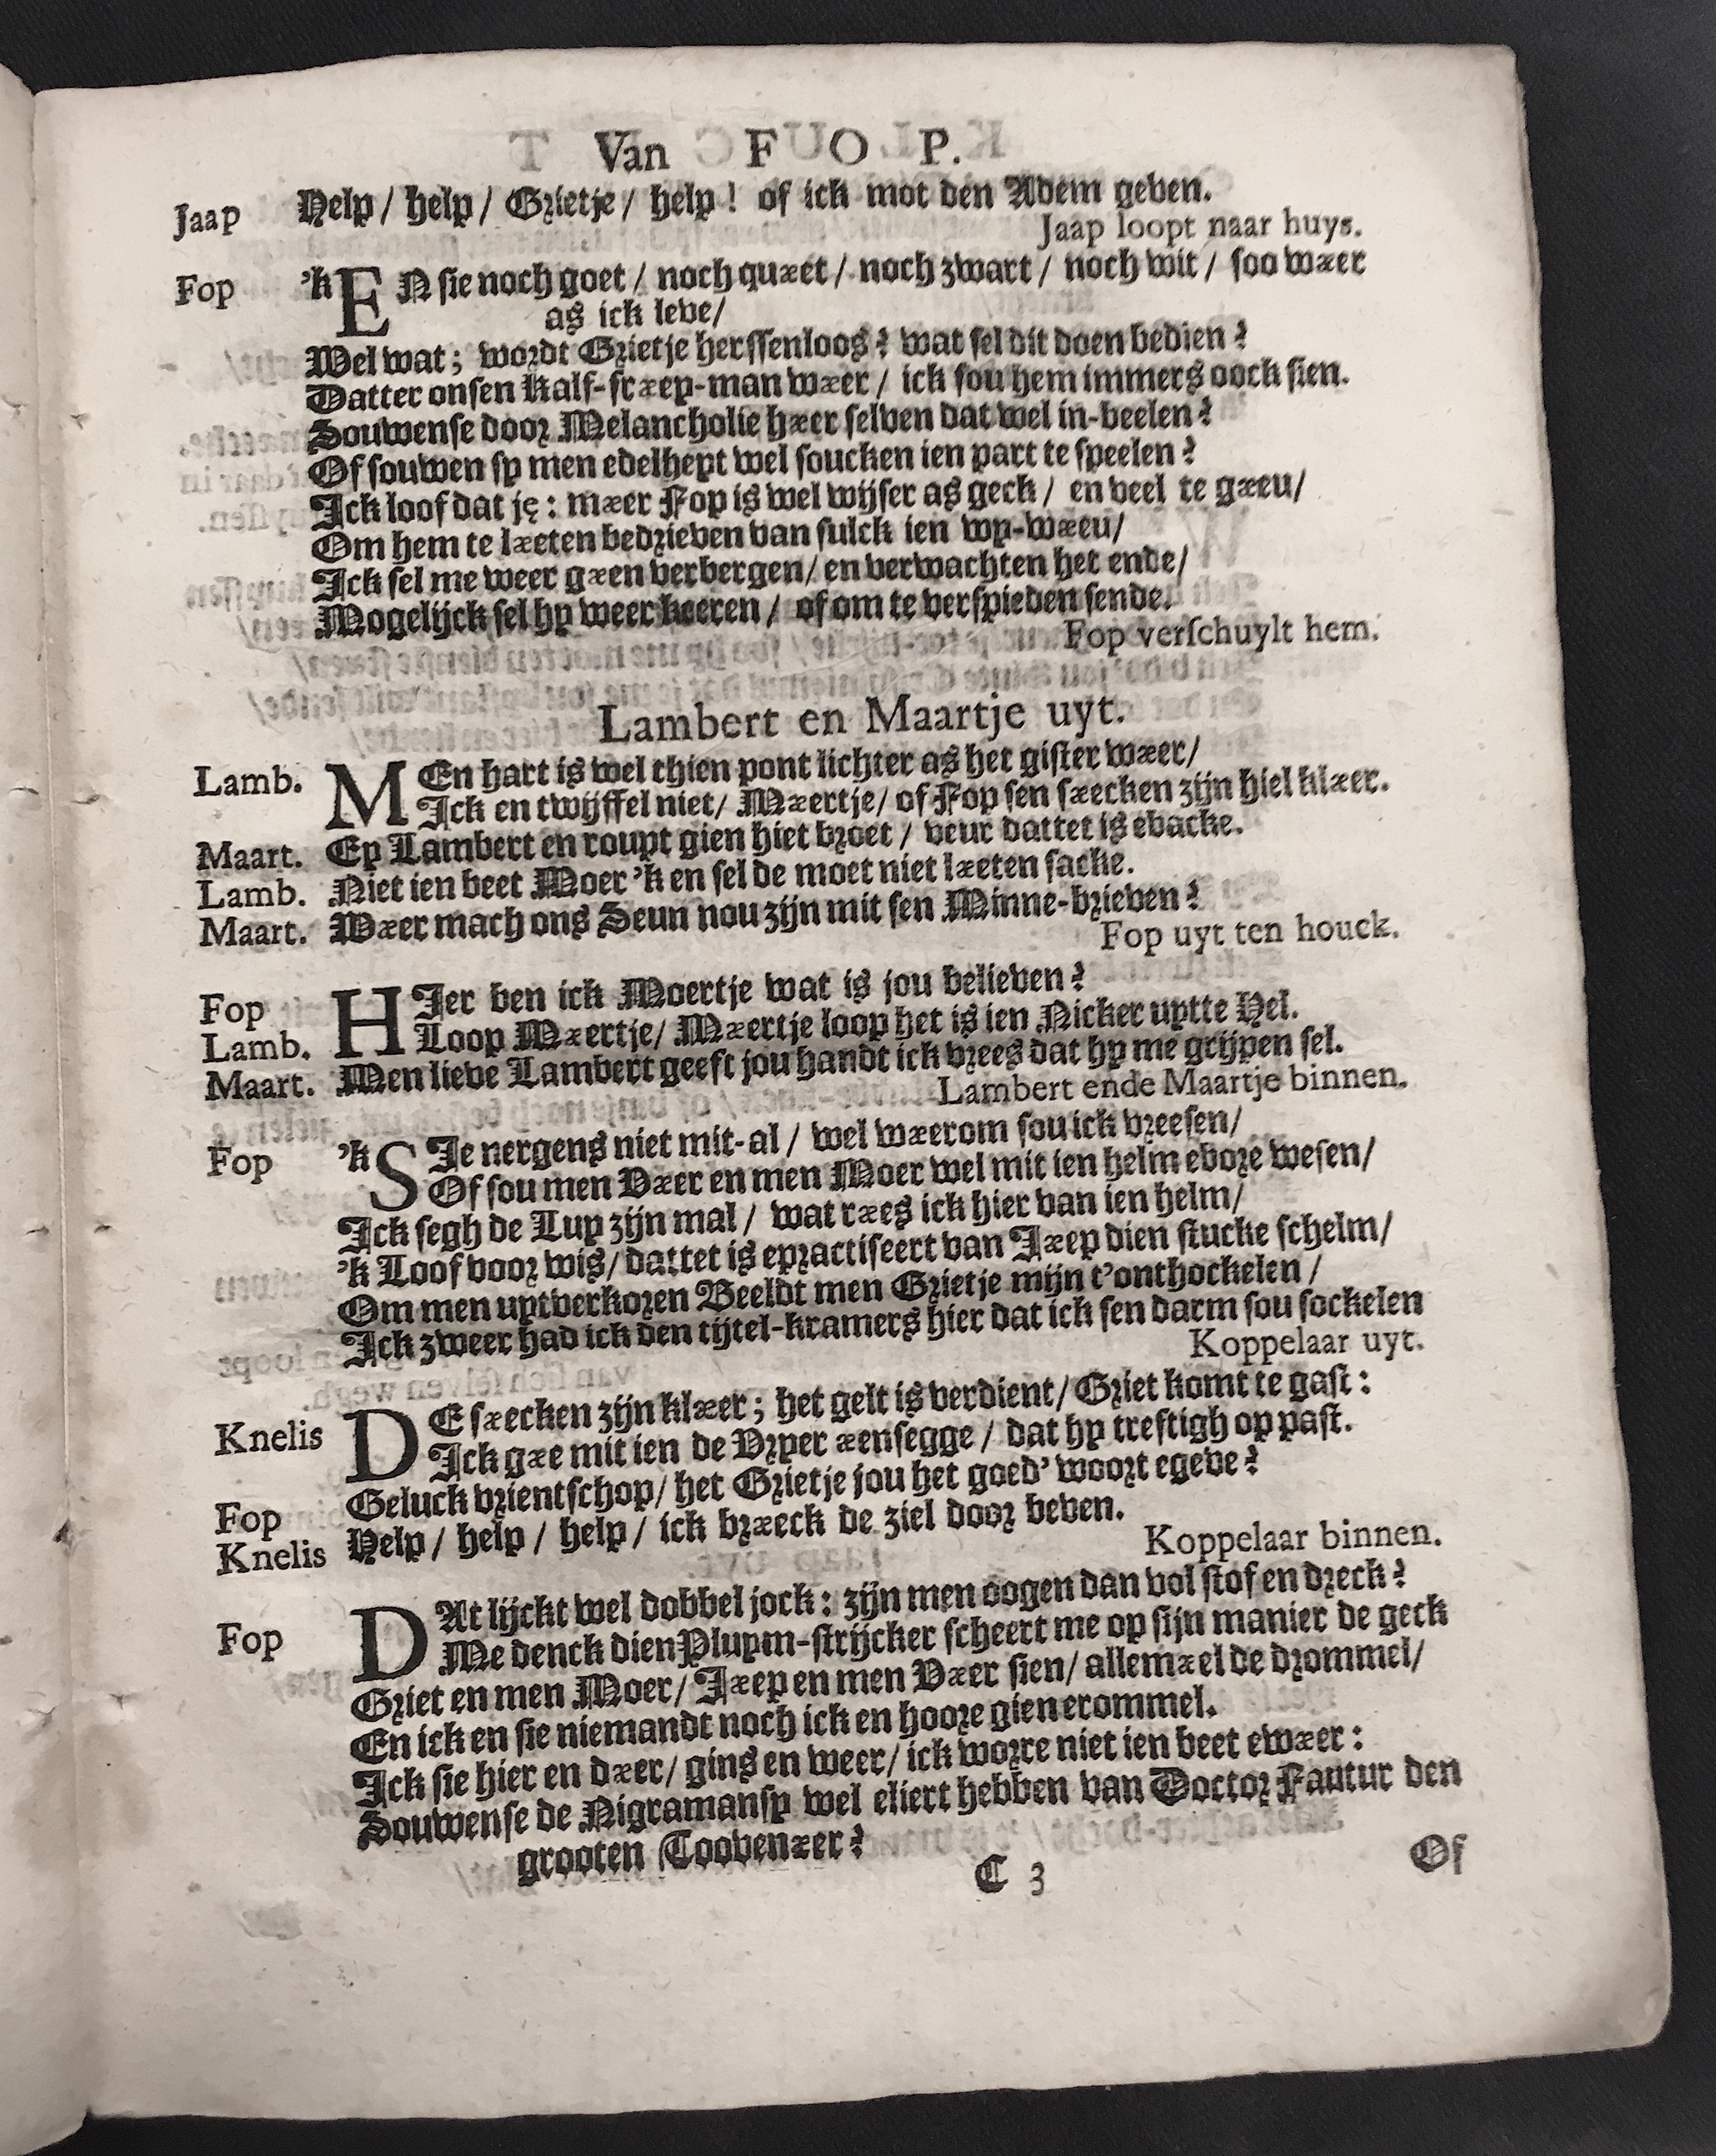 Van F O P.
Jaap Help / help / Grietje / help ! of ick mot den Adem geven.
Jaap loopt naar huys.
Fop 'k EN sie noch goet / noch quæt / noch zwart / noch wit / soo wær
as ick leve /
Wel wat ; wordt Grietje herssenloos ? wat sel dit doen bedien ?
Datter onsen Kalf-sræp-man wær / ick sou hem immers oock sien.
Souwense door Melancholie hær selven dat wel in-beelen ?
Of souwen sy men edelheyt wel soucken ien part te speelen ?
Ick loof dat je : mær Fop is wel wijser as geck / en veel te gæu /
Om hem te læten bedrieven van sulck ien wy-wæu /
Ick sel me weer gæn verbergen / en verwachten het ende /
Mogelijck sel hy weer keeren / of om te verspieden sende.
Fop verschuylt hem.
Lambert en Maartje uyt.
Lamb. MEn hart is wel thien pont lichter as het gister wær /
Ick en twijffel niet / Mærtje / of Fop sen sæcken zijn hiel klær.
Maart. Ey Lambert en roupt gien hiet broet / veur dattet is ebacke.
Lamb. Niet ien beet Moer 'k en sel de moet niet læten sacke.
Maart. Wær mach ons Seun nou zijn mit sen Minne-brieven ?
Fop uyt ten houck.
Fop HIer ben ick Moertje wat is jou believen ?
Lamb. Loop Mærtje / Mærtje loop het is ien Nicker uytte Hel.
Maart. Men lieve Lambert geeft jou handt ick vrees dat hy me grijpen sel.
Lambert ende Maartje binnen.
Fop 'k SIe nergens niet mit-al / wel wærom sou ick vreesen /
Of sou men Vær en men Moer wel mit ien helm ebore wesen /
Ick segh de Luy zijn mal / wat ræs ick hier van ien helm /
'k Loof voor wis / dattet is epractiseert van Jæp dien stucke schelm /
Om men uytverkoren Beeldt men Grietje mijn t'onthockelen /
Ick zweer had ick den tijtel-kramers hier dat ick sen darm sou sockelen
Koppelaar uyt.
Knelis DE sæcken zijn klær ; het gelt is verdient / Griet komt te gast :
Ick gæ mit ien de Vryer ænsegge / dat hy treftigh op past.
Fop Geluck vrientschop / het Grietje jou het goed' woort egeve ?
Knelis Help / help / help / ick bræck de ziel door beven.
Koppelaar binnen.
Fop DAt lijckt wel dobbel jock : zijn men oogen dan vol stof en dreck ?
Me denck dien Pluym-strijcker scheert me op sijn manier de geck
Griet en men Moer / Jæp en men Vær sien / allemæl de drommel /
En ick en sie niemandt noch ick en hoore gien erommel.
Ick sie hier en dær / gins en weer / ick worre niet ien beet ewær :
Souwense de Nigramansy wel eliert hebben van Doctor Fautur den
grooten Toovenær ?
C 3 Of